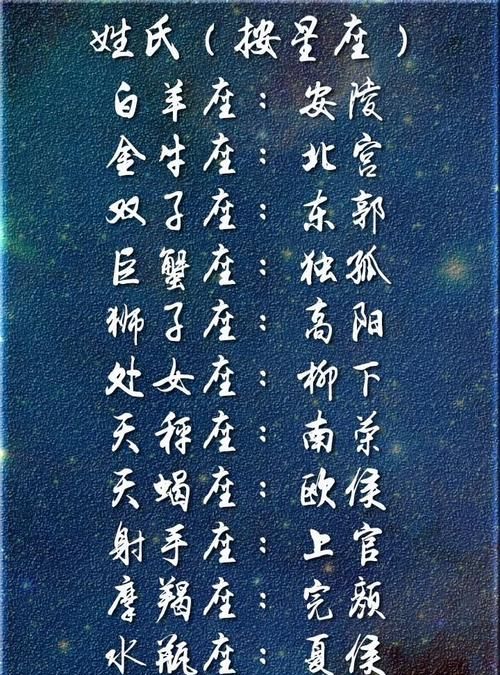 姓氏（按星座）
白羊座：安陵
金牛座：北宫
双子座：东郭
巨蟹座：独孤
狮子座：高阳
处女座：柳下
天秤座：南荣
天蝎座：欧侯
射手座：上官
摩羯座：完颜
水瓶座：夏侯